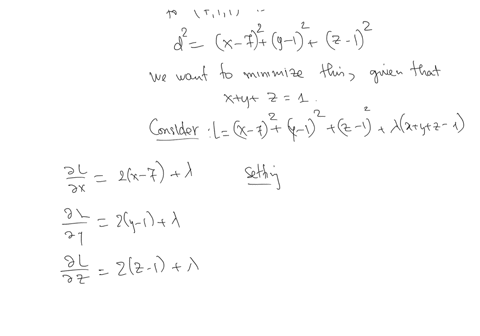 to (7,1,1) is
d² = (x-7)² + (y-1)² + (z-1)²
we want to minimize this, given that
x+y+z = 1.
Consider: L = (x-7)² + (y-1)² + (z-1)² + λ(x+y+z-1)
∂L/∂x = 2(x-7) + λ Setting
∂L/∂y = 2(y-1) + λ
∂L/∂z = 2(z-1) + λ